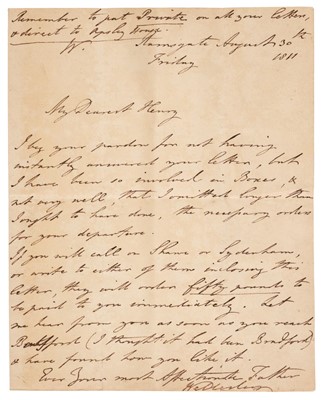 Remember to put Private on all your letters,
& direct to Apsley House.
W. Ramsgate August 30th
Friday 1811
My Dearest Henry
I beg your pardon for not having
instantly answered your letter, but
I have been so involved in Boxes, &
not very well, that I omitted longer than
I ought to have done, the necessary orders
for your departure.
If you will call on Shawe or Sydenham,
or write to either of them enclosing this
letter, they will order fifty pounds to
be paid to you immediately. Let
me hear from you as soon as you reach
(I thought it had been Bradford)
& have found how you like it.
Ever Your most Affectionate Father
Wellesley